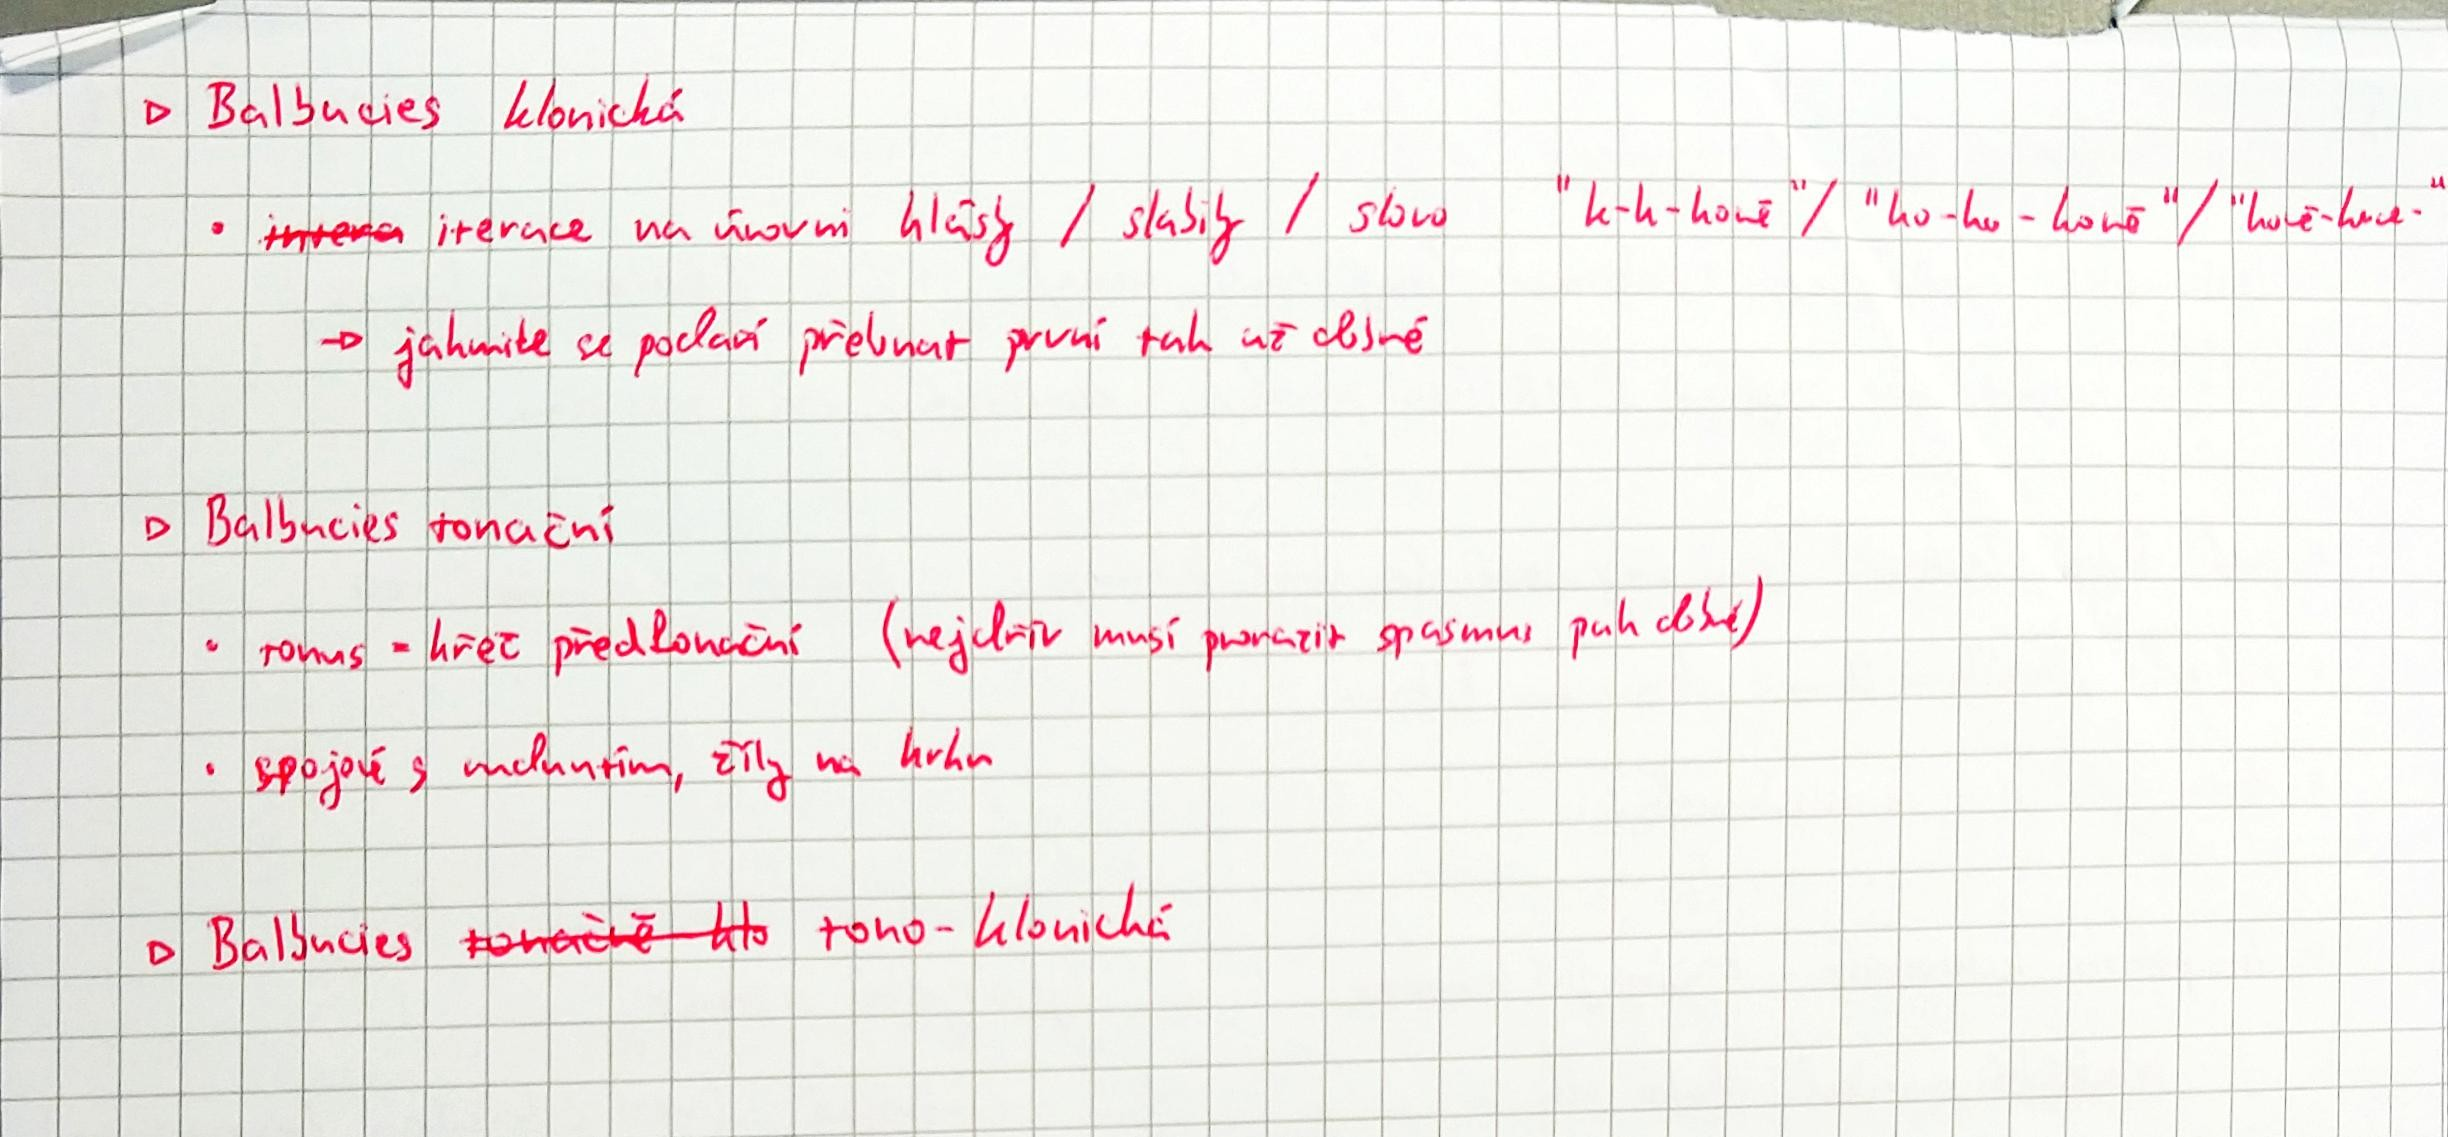 ▷ Balbucies klonická
• intera iterace na úrovni hlásky / slabiky / slovo "k-k-koně" / "ko-ko-koně" / "koně-koně-"
→ jakmile se podaří překonat první tak už dobré
▷ Balbucies tonační
• tonus = křeč předfonační (nejdřív musí prorazit spasmus pak dobré)
• spojové s, žíly na krku
▷ Balbucies tonačně klo tono-klonická